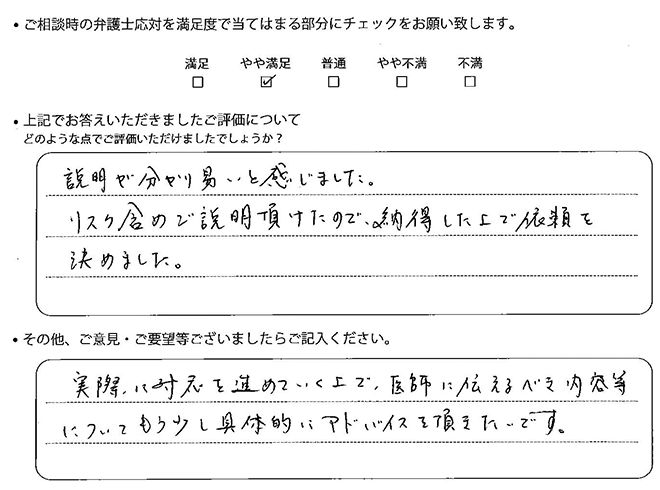 ・ご相談時の弁護士応対を満足度で当てはまる部分にチェックをお願い致します。
満足 やや満足 普通 やや不満 不満
□ ☑ □ □ □
・上記でお答えいただきましたご評価について
どのような点でご評価いただけましたでしょうか？
説明が分かり易いと感じました。
リスク含めご説明頂けたので、納得した上で依頼を
決めました。
・その他、ご意見・ご要望等ございましたらご記入ください。
実際に対応を進めていく上で、医師に伝えるべき内容等
についてもう少し具体的にアドバイスを頂きたいです。